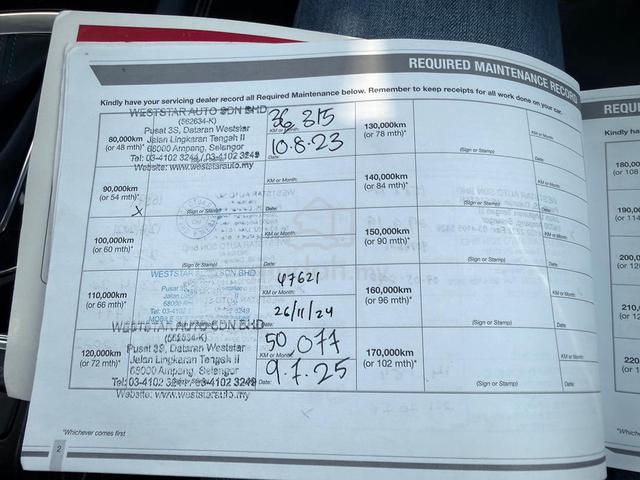 REQUIRED MAINTENANCE RECORD
Kindly have your servicing dealer record all Required Maintenance below. Remember to keep receipts for all work done on your car.
WESTSTAR AUTO SDN BHD
(562634-K)
Pusat 3S, Dataran Weststar
Jalan Lingkaran Tengah II
68000 Ampang, Selangor
Tel: 03-4102 3244 / 03-4102 3249
Website: www.weststarauto.my
80,000km
(or 48 mth)*
36 815
KM or Month:
10.8.23
Date:
90,000km
(or 54 mth)*
x
(Sign or Stamp)
KM or Month:
Date:
100,000km
(or 60 mth)*
(Sign or Stamp)
KM or Month:
Date:
110,000km
(or 66 mth)*
WESTSTAR AUTO SDN BHD
47621
KM or Month:
26/11/24
WESTSTAR AUTO SDN BHD
(562634-K)
Pusat 3S, Dataran Weststar
Jalan Lingkaran Tengah II
68000 Ampang, Selangor
Tel: 03-4102 3244 / 03-4102 3249
Website: www.weststarauto.my
120,000km
(or 72 mth)*
50,077
KM or Month:
9.7.25
Date:
130,000km
(or 78 mth)*
(Sign or Stamp)
KM or Month:
Date:
140,000km
(or 84 mth)*
(Sign or Stamp)
KM or Month:
Date:
150,000km
(or 90 mth)*
(Sign or Stamp)
KM or Month:
Date:
160,000km
(or 96 mth)*
(Sign or Stamp)
KM or Month:
Date:
170,000km
(or 102 mth)*
(Sign or Stamp)
KM or Month:
Date:
*Whichever comes first
2
REQU
Kindly ha
180,00
(or 108
190,0
(or 114
200,0
210,0
220
*Which